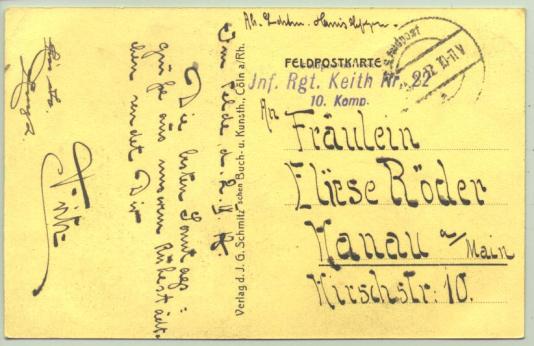 FELDPOSTKARTE
Jnf. Rgt. Keith Nr. 22
10. Komp.
An
Fräulein
Eliese Röder
Hanau a/Main
Hirschstr: 10.
Verlag d. J. G. Schmitz'schen Buch- u. Kunsth., Cöln a/Rh.
Im Felde d.
Die besten Sonntags=
grüße aus unserem
sendet Dir
Fritz